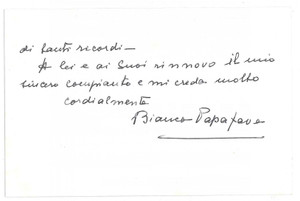 di tanti ricordi –
A lei e ai Suoi rinnovo il mio
sincero compianto e mi creda molto
cordialmente
Bianca Papafava